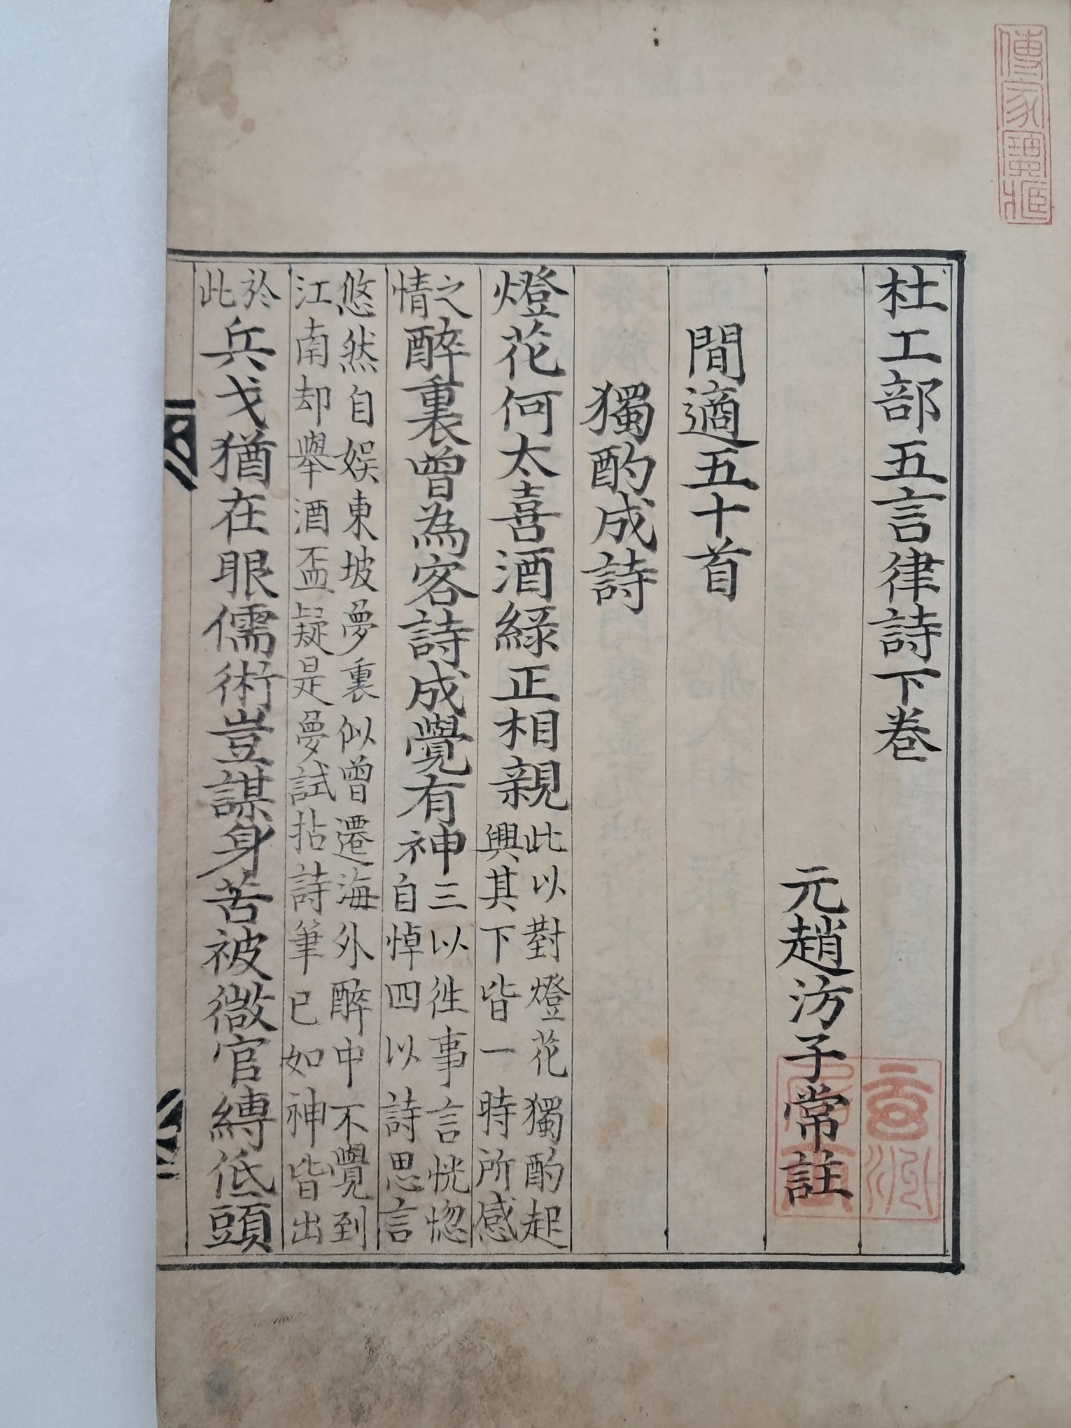 傳家寶藏
杜工部五言律詩下卷
元趙汸子常註
閒適五十首
獨酌成詩
燈花何太喜酒綠正相親此以對燈花獨酌起
興其下皆一時所感
之情醉裏曾為客詩成覺有神三以徃事言恍惚
自悼四以詩思言
悠然自娱東坡夢裏似曾遷海外醉中不覺到
江南却舉酒盃疑是夢試拈詩筆已如神皆出
於此兵戈猶在眼儒術豈謀身苦被微官縛低頭